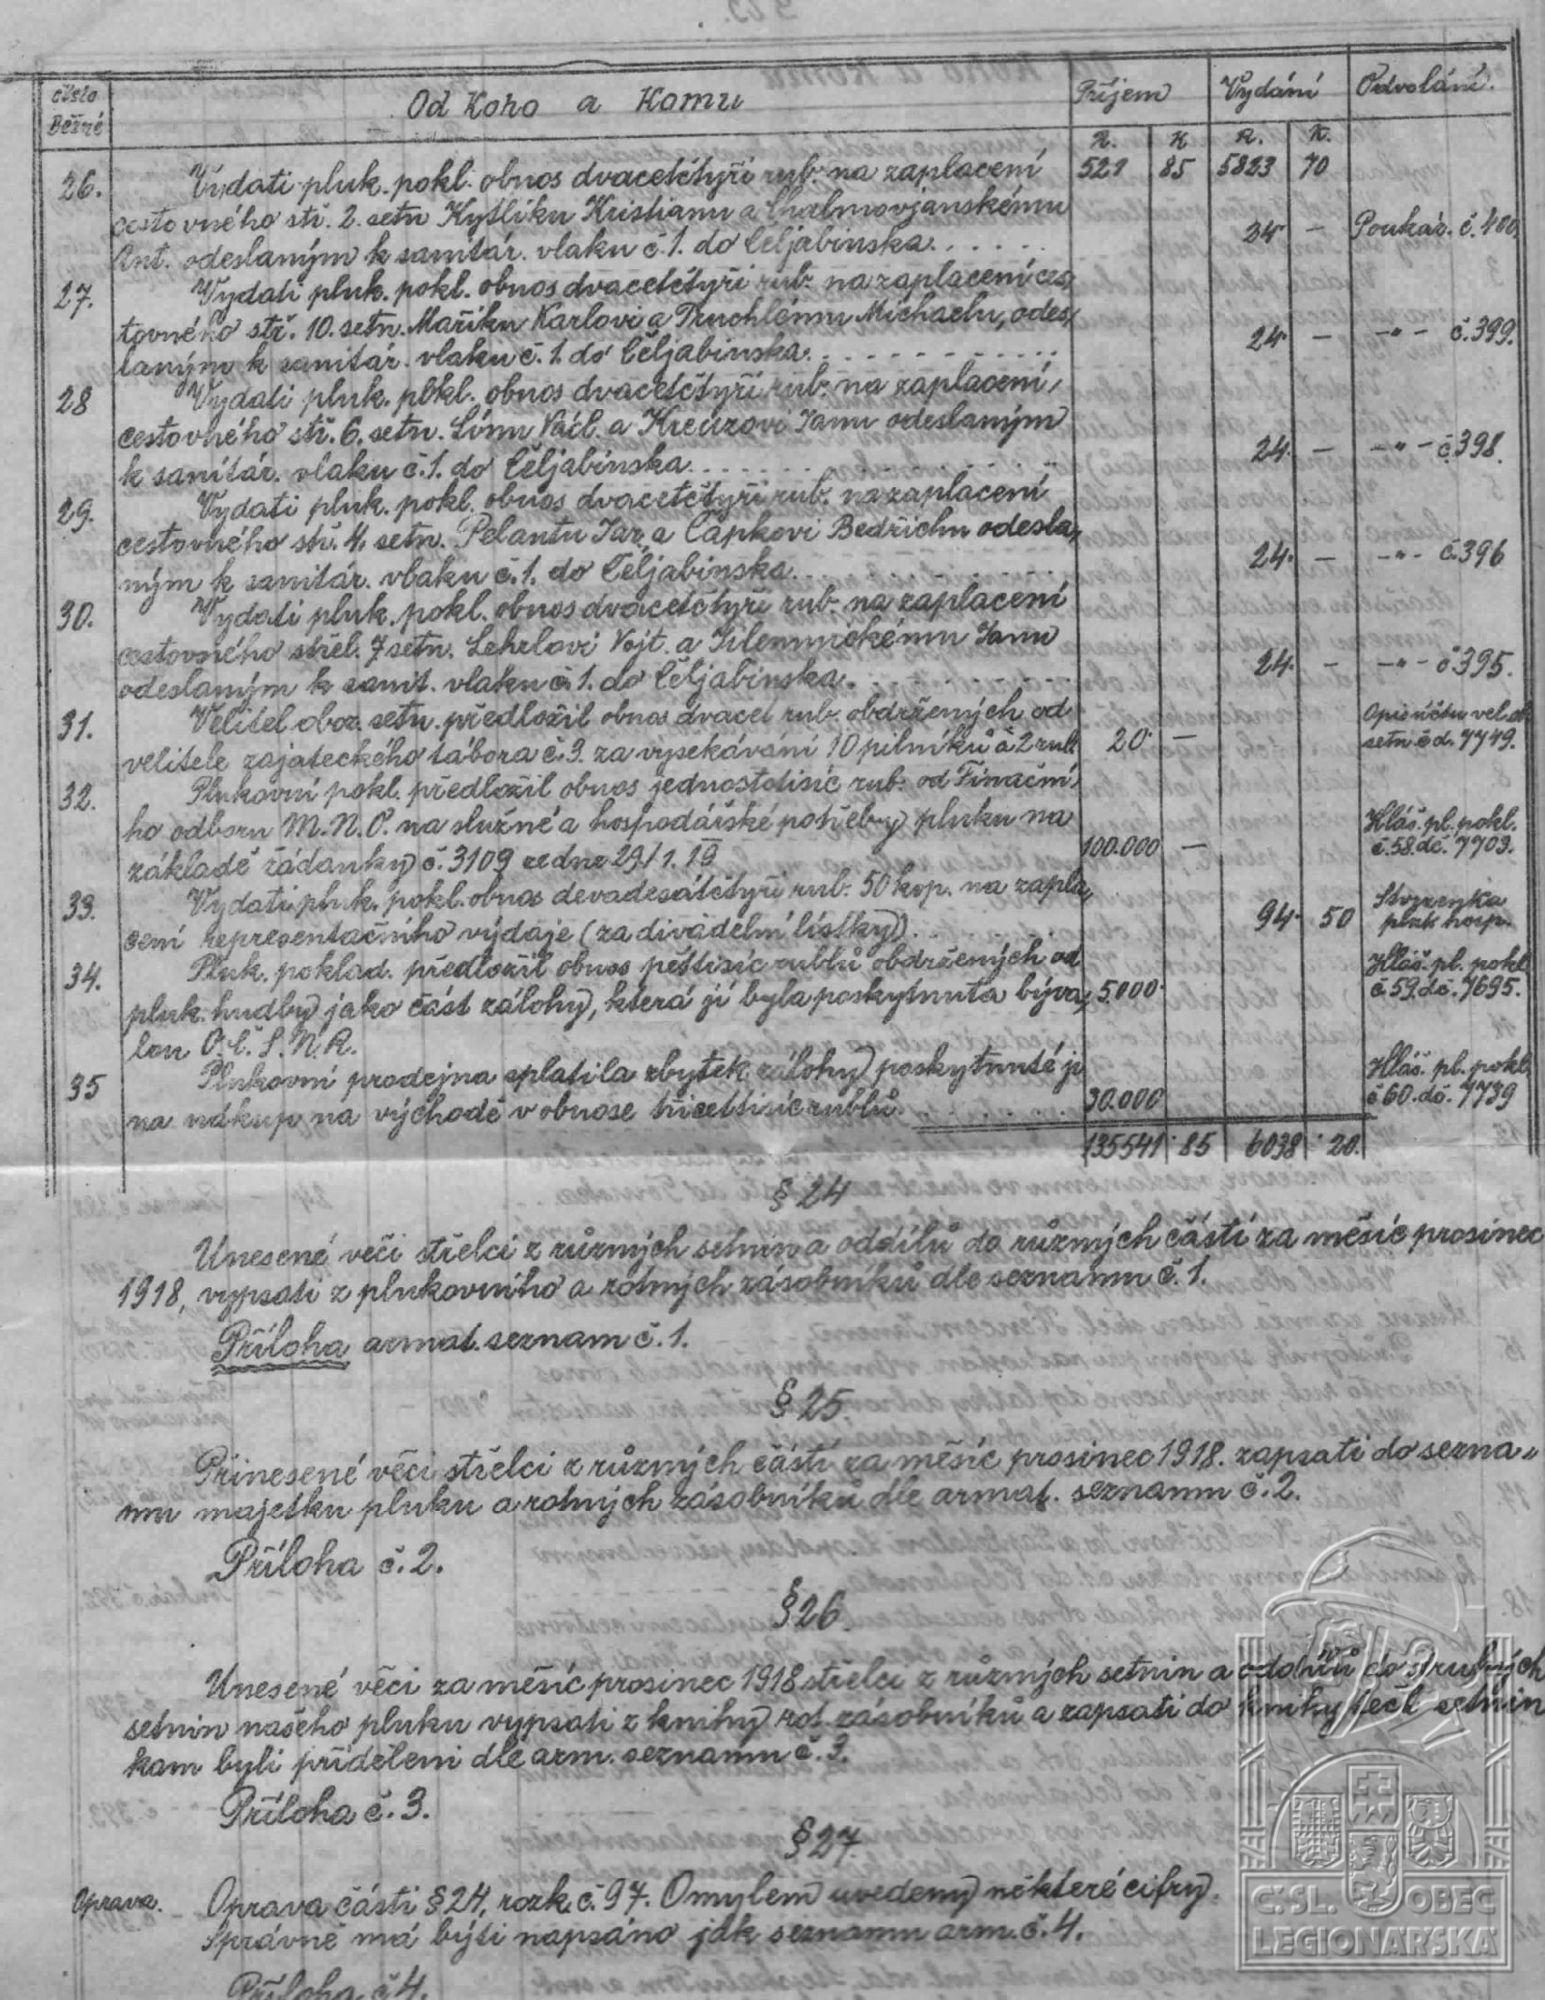 číslo Od Koho a Komu Příjem Vydání Odvolání.
Bežné R. K R. K.
26. Vydati pluk. pokl. obnos dvacetčtyři rub. na zaplacení 521 85 5823 70
cestovného stř. 2. setn Kytlíku Kristianu a Chalmovjanskému 24 — Poukáz. č. 400.
Ant. odeslaným k sanitár. vlaku č. 1. do Čeljabinska.
27. Vydati pluk. pokl. obnos dvacetčtyři rub. na zaplacení ces,
tovného stř. 10. setn. Maříku Karlovi a Truchlému Michaelu, odes, 24. — -"- č. 399.
laným k sanitár. vlaku č. 1. do Čeljabinska.
28 Vydati pluk. pokl. obnos dvacetčtyři rub. na zaplacení,
cestovného stř. 6. setn. Símu Václ. a Kreuzovi Janu odeslaným 24. — -"- č. 398.
k sanitár. vlaku č. 1. do Čeljabinska.
29. Vydati pluk. pokl. obnos dvacetčtyři rub. na zaplacení
cestovného stř. 4. setn. Pelantu Jar. a Čapkovi Bedřichu odesla, 24. — -"- č. 396
ným k sanitár. vlaku č. 1. do Čeljabinska.
30. Vydati pluk. pokl. obnos dvacetčtyři rub. na zaplacení
cestovného střel. 7 setn. Lehrlovi Vojt. a Jilemnickému Janu 24. — -"- č. 395.
odeslaným k sanit. vlaku č. 1. do Čeljabinska.
31. Velitel oboz. setn. předložil obnos dvacet rub. obdržených od Opis účtu vel. ob.
velitele zajateckého tábora č. 3. za vysekávání 10 pilníků à 2 rub. 20. — setn. č d. 7749.
32. Plukovní pokl. předložil obnos jednostotisíc rub. od Finační,
ho odboru M. N. O. na služné a hospodářské potřeby pluku na Hláš. pl. pokl.
základě žádanky č. 3109 ze dne 29/1. 19 100.000 — č. 58. dč. 7703.
33. Vydati pluk. pokl. obnos devadesátčtyři rub. 50 kop. na zapla, Stvrzenka
cení representačního výdaje (za divadelní lístky) 94. 50 pluk hosp.
34. Pluk. poklad. předložil obnos pěttisíc rublů obdržených od Hláš. pl. pokl
pluk. hudby jako část zálohy, která jí byla poskytnuta býva, 5.000. č. 59. dč. 7695.
lou O. Č. S. N. R.
35 Plukovní prodejna splatila zbytek zálohy poskytnuté jí Hláš. pl. pokl.
na nákup na východě v obnose třicettisíc rublů. 30.000 č 60. dč. 7739
135541 85 6038 20.
§ 24
Unesené věci střelci z různých setnin a oddílů do různých částí za měsíc prosinec
1918, vypsati z plukovního a rotných zásobníků dle seznamu č. 1.
Příloha armat. seznam č. 1.
§ 25.
Přinesené věci střelci z různých částí za měsíc prosinec 1918. zapsati do sezna„
mu majetku pluku a rotných zásobníků dle armat. seznamu č. 2.
Příloha č. 2.
§ 26.
Unesené věci za měsíc prosinec 1918 střelci z různých setnin a do druhých
setnin našeho pluku vypsati z knihy rot. zásobníků a zapsati do knihy těch setnin
kam byli přiděleni dle arm. seznamu č. 3.
Příloha č. 3.
§ 27.
Oprava. Oprava části § 24, rozk. č. 97. Omylem uvedeny některé cifry.
Správně má býti napsáno jak seznamu arm. č. 4.
Příloha č 4.
ČSL. OBEC
LEGIONÁŘSKÁ